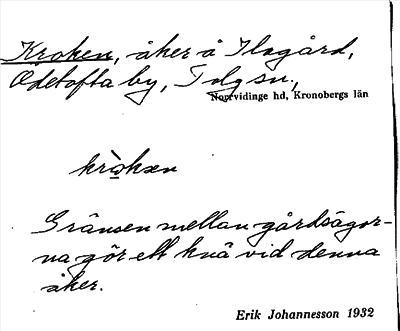 Kroken, åker å Ilagård,
Ödetofta by, Tolg sn.,
Norrvidinge hd, Kronobergs län
Gränsen mellan gårdsägor-
na gör ett knä vid denna
åker.
Erik Johannesson 1932